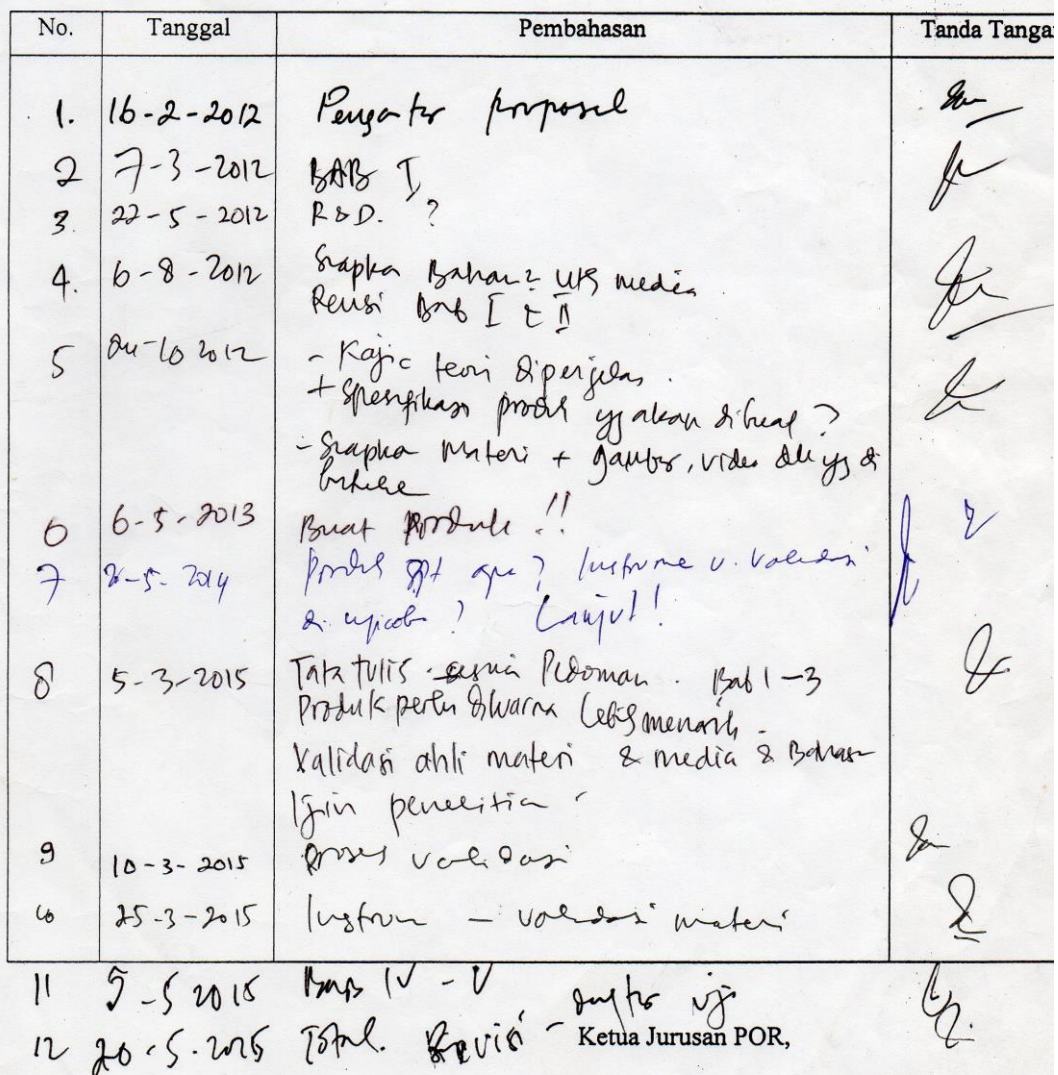 No. Tanggal Pembahasan Tanda Tangan
1. 16-2-2012 Pengantar proposal
2 7-3-2012 BAB I
3. 22-5-2012 R&D. ?
4. 6-8-2012 Siapka Bahan2 utk media
Revisi Bab I & II
5 04-10 2012 - Kajia teori diperjelas.
+ Spesifikasi produk yg akan dibuat ?
- Siapka Materi + gambar, video dll yg di
6 6-5-2013 Buat Produk !!
7 -5-2014 Produk spt apa ? Instrume u. Validasi
di ujicoba ? Lanjut!
8 5-3-2015 Tata tulis sesuai Pedoman. Bab 1-3
Produk perlu diwarna lebih menarik.
Validasi ahli materi & media & Bahasa
Ijin penelitia
9 10-3-2015 proses validasi
10 25-3-2015 Instrum - validasi materi
11 5-5 2015 Bab IV - V
12 20-5-2015 Total. Revisi - daftar uji
Ketua Jurusan POR,